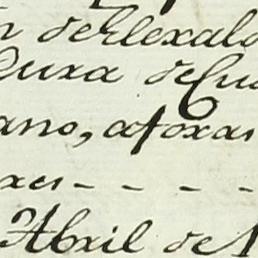 n de Elexald
Cura de Cu
ano, a foxas
xes - - - -
Abril de 1